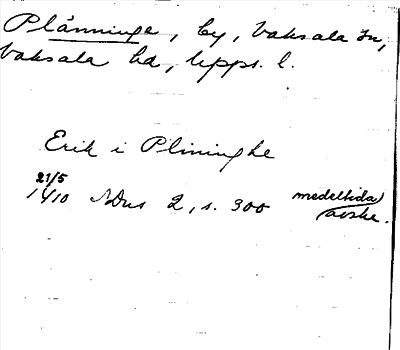 Plånninge, by, Vaksala sn,
Vaksala hd, Upps. l.
Erik i Plininghe
21/5
1410 SDns 2, s. 300 medeltida
avskr.